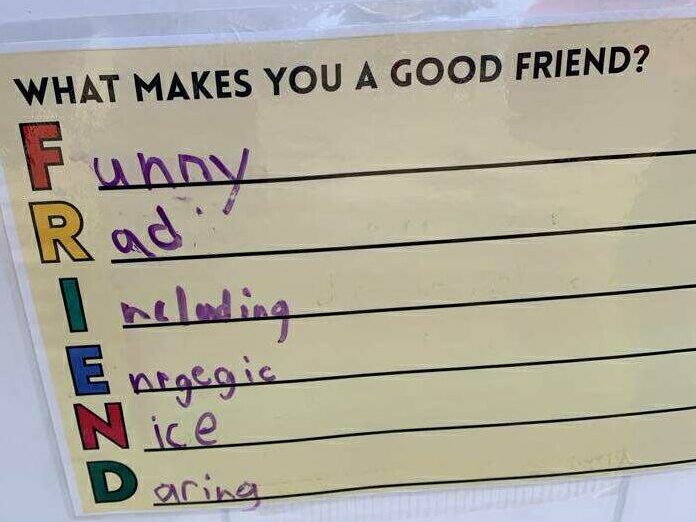 WHAT MAKES YOU A GOOD FRIEND?
Funny
Rad
Including
Enrgegic
Nice
Daring